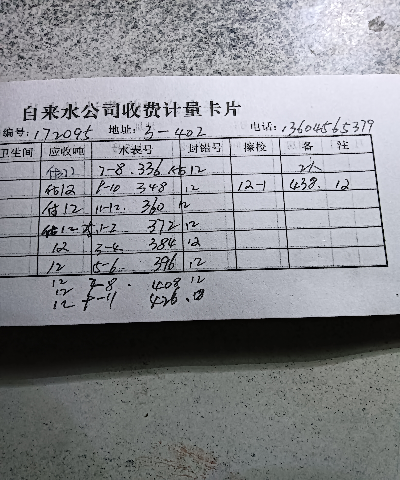 自来水公司收费计量卡片
编号: 172095 地址: 3-402 电话: 13604565379
卫生间 应收吨 水表号 封铅号 撩校 备 注
估12 7-8 336 估12
估12 9-10 348 12 12-1 438 12
估12 11-12 360 12
估12 1-2 372 12
12 3-4 384 12
12 5-6 396 12
12 7-8 408 12
12 426